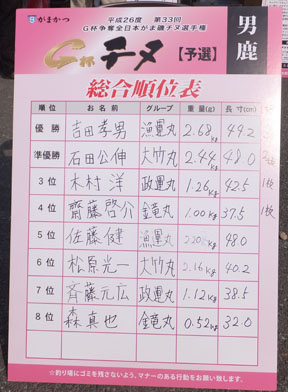 がまかつ
平成26度 第33回
G杯争奪全日本がま磯チヌ選手権
男鹿
G杯 チヌ 【予選】
総合順位表
順位 お名前 グループ 重量(g) 長寸(cm)
優勝 吉田孝男 漁運丸 2.68kg 49.2
準優勝 石田公伸 大竹丸 2.44kg 48.0
3位 木村洋 政運丸 1.26kg 42.5 1枚
4位 齋藤啓介 金竜丸 1.00kg 37.5 1枚
5位 佐藤健 漁運丸 48.0
6位 松原光一 大竹丸 2.16kg 40.2
7位 斉藤元広 政運丸 1.12kg 38.5
8位 森真也 金竜丸 0.52kg 32.0
☆釣り場にゴミを残さないよう、マナーのある行動をお願い致します。